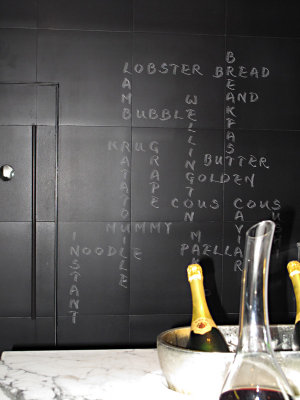 LOBSTER BREAD
BREAKFAST
LAMB
AND
WELLINGTON
BUBBLE
KRUG
RATATOUILLE
GRAPE
BUTTER
GOLDEN
COUS COUS
CAVIAR
MUMMY
INSTANT
NOODLE
PAELLA